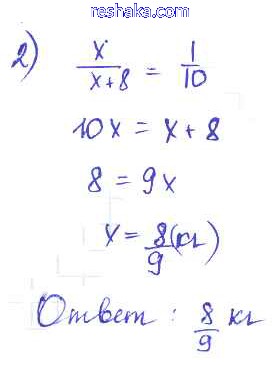 reshaka.com
2) x/(x+8) = 1/10
10x = x + 8
8 = 9x
x = 8/9 (кг)
Ответ : 8/9 кг